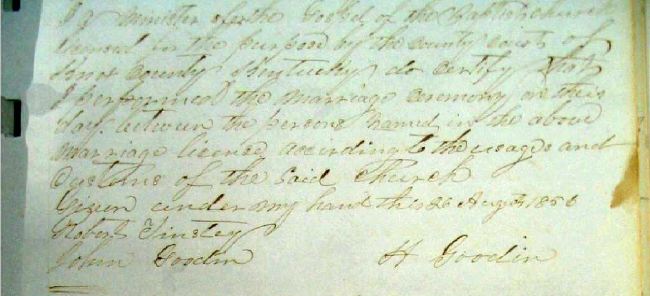 I a minister of the Gospel of the Baptist church
licensed for the purpose by the county courts of
Knox County Kentucky do certify that
I performed the marriage ceremony on this
day between the persons named in the above
marriage licence according to the usages and
Customs of the said Church
Given under my hand this 26 August 1858
Robert Tinsley
John Goodin H Goodin